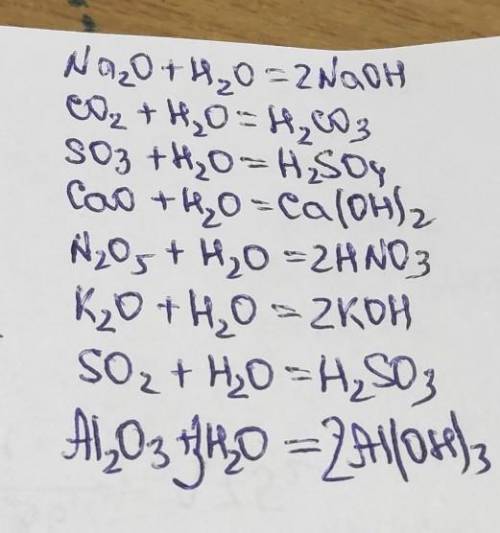 Na₂O + H₂O = 2NaOH
CO₂ + H₂O = H₂CO₃
SO₃ + H₂O = H₂SO₄
CaO + H₂O = Ca(OH)₂
N₂O₅ + H₂O = 2HNO₃
K₂O + H₂O = 2KOH
SO₂ + H₂O = H₂SO₃
Al₂O₃ + 3H₂O = 2Al(OH)₃